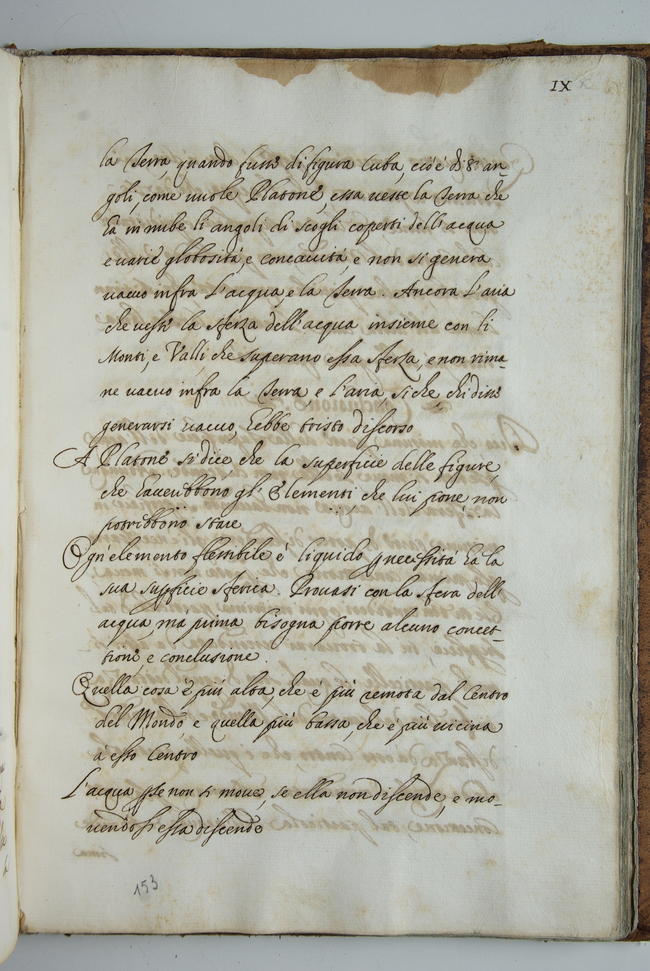 IX
la Terra, quando fusse di figura cuba, cioè di 8 an-
goli, come vuole Platone, essa veste la Terra che
hà innube li angoli di scogli coperti dell'acqua
e varie globosità, e concavità, e non si genera
vacuo infra l'acqua, e la Terra. Ancora l'aria
che veste la sferza dell'acqua insieme con li
Monti, e Valli che superano essa sferza, e non rima-
ne vacuo infra la Terra, e l'aria, si che, chi disse
generarsi vacuo, hebbe tristo discorso
A Platone si dice, che la superficie delle figure,
che haveribbono gl' Elementi, che lui pone, non
potribbono stare
Ogn'elemento flessibile è liquido p necessità hà la
sua supficie sferica. Provasi con la sfera dell'
acqua, mà prima bisogna porre alcuno concet-
tione, e conclusione.
Quella cosa è più alta, che è più remota dal Centro
del Mondo, e quella più bassa, che è più vicina
à esso Centro
L'acqua p se non si move, se ella non discende, e mo-
vendosi essa discende
153